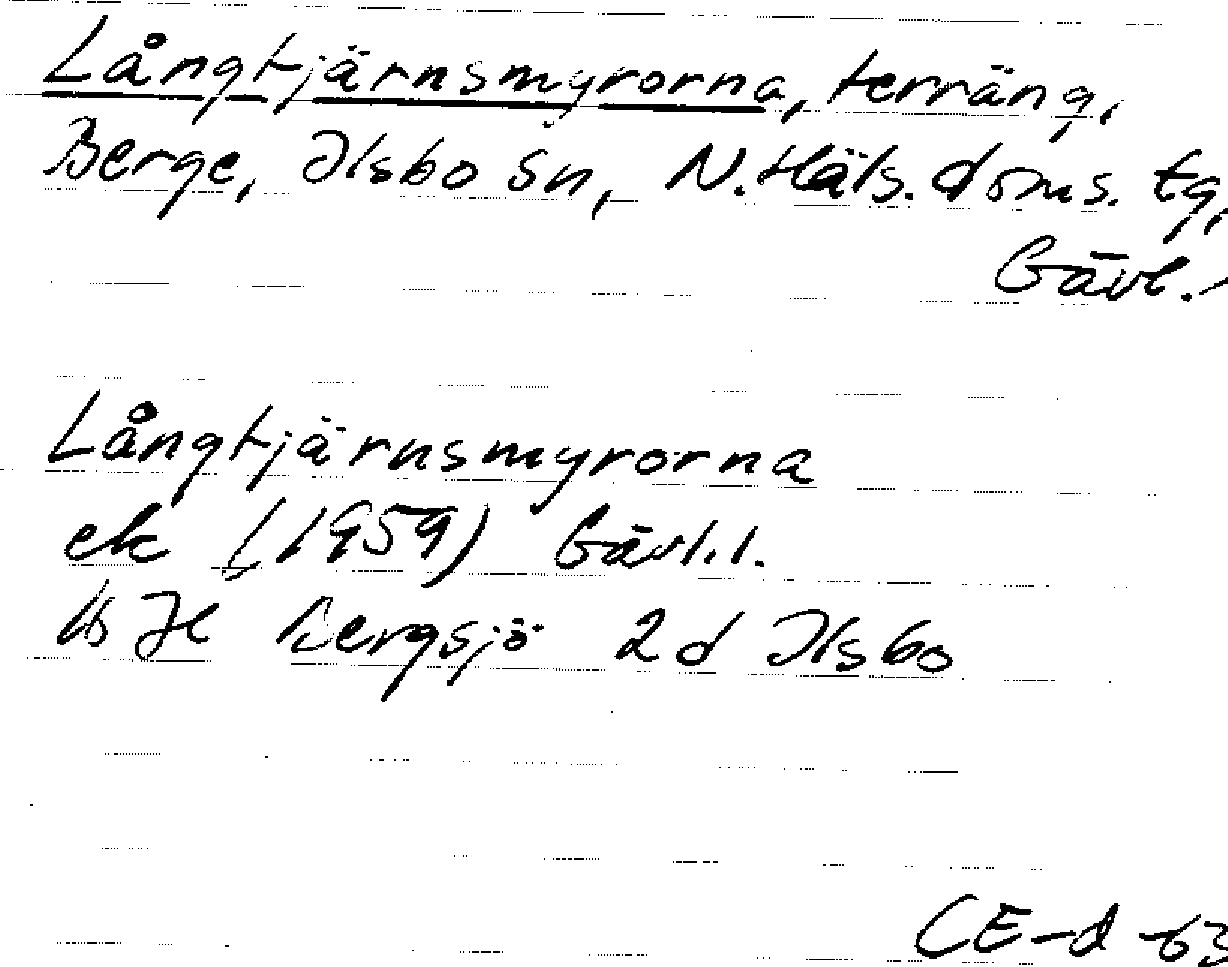 Långtjärnsmyrorna, terräng,
Berge, Ilsbo sn, N. Häls. doms. tg,
Gävl.
Långtjärnsmyrorna
ek (1959) Gävl.l.
Bergsjö 2d Ilsbo
CE-d -63